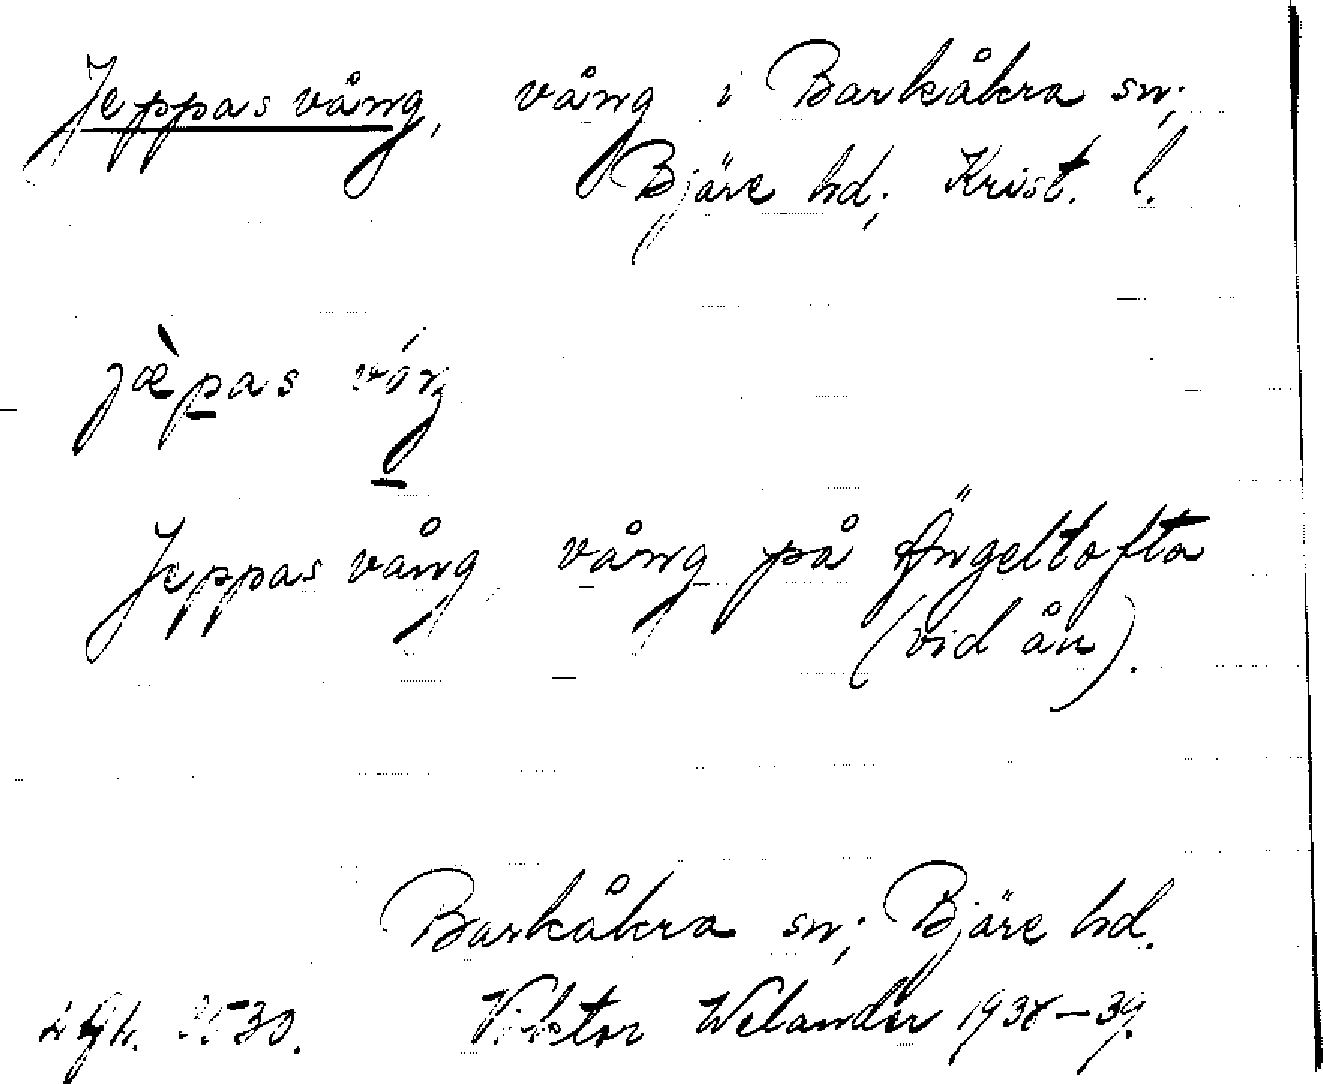 Jeppas vång, vång i Barkåkra sn;
Bjäre hd; Krist. l.
jæ̀pas vóŋ
Jeppas vång, vång på Ängeltofta
(vid ån).
Barkåkra sn; Bjäre hd.
Viktor Welander 1938–39.